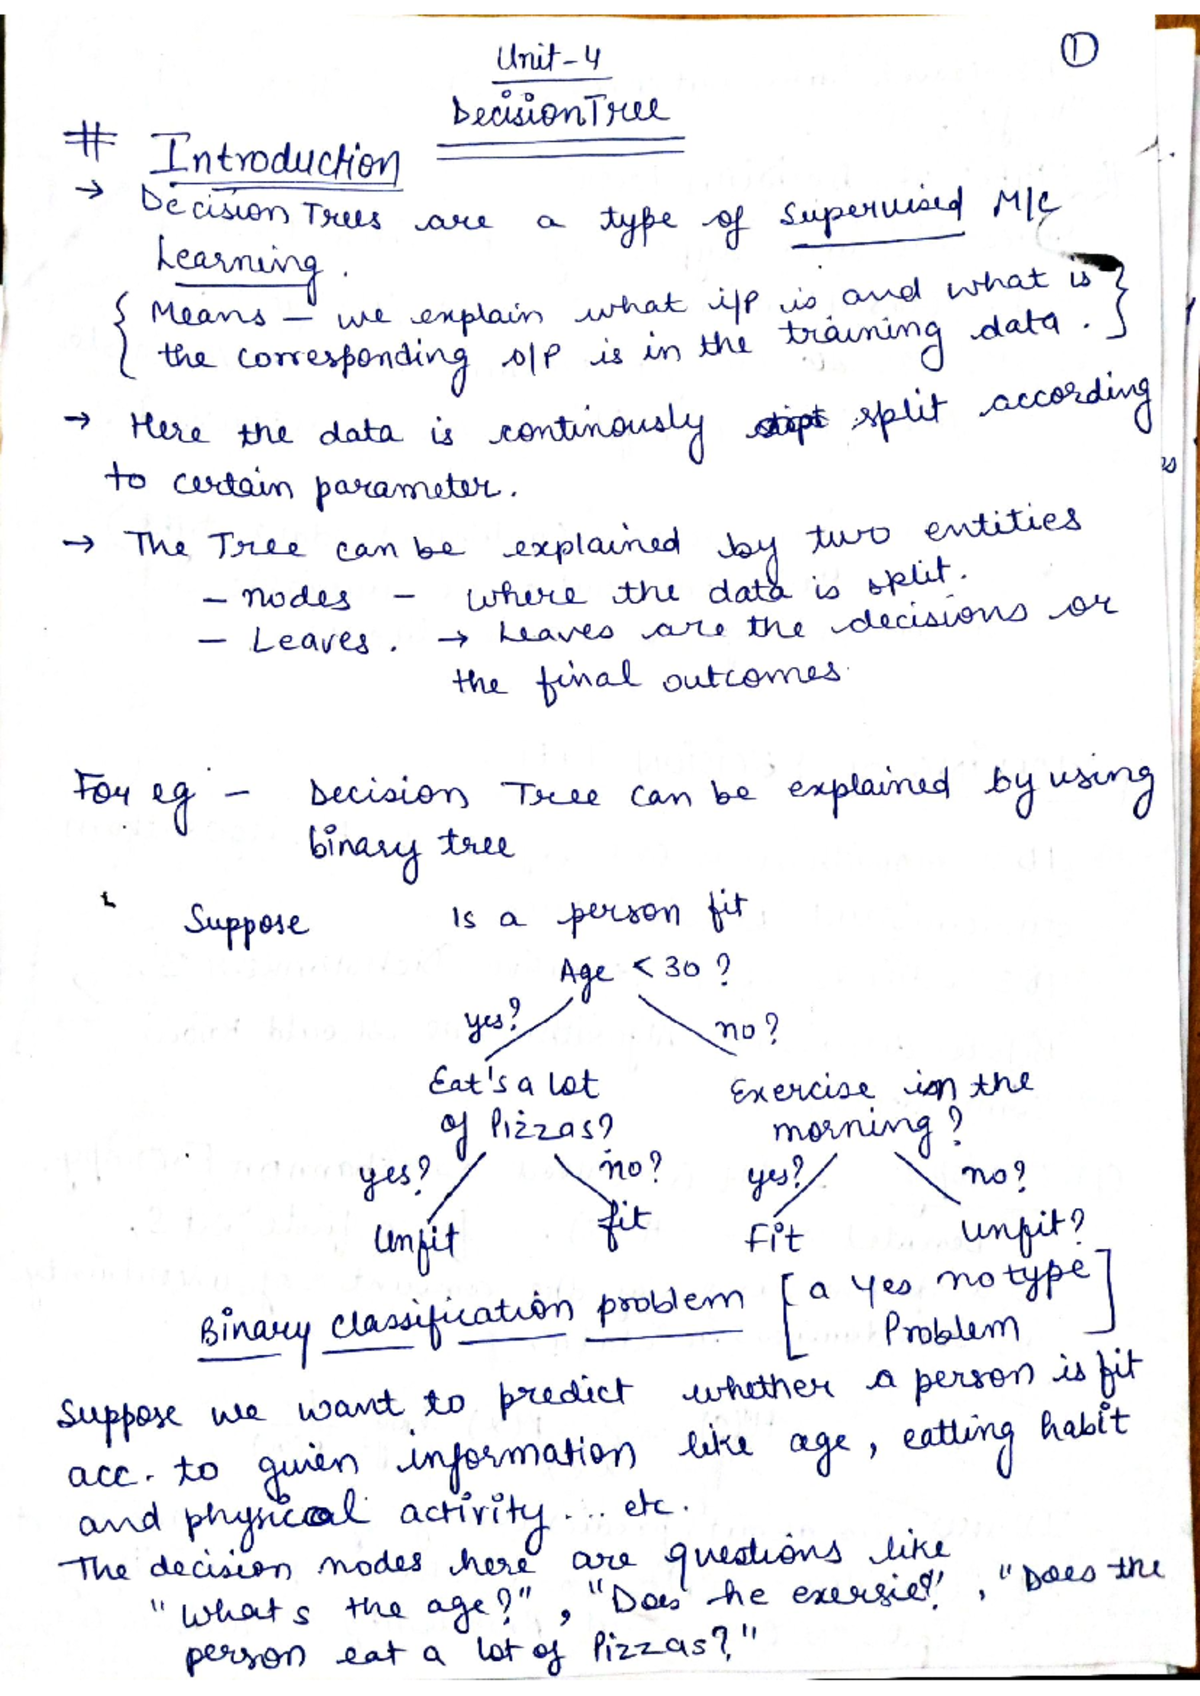 Unit-4
①
Decision Tree
# Introduction
→ Decision Trees are a type of Supervised M/C
Learning.
{ Means – we explain what i/p is and what is
the corresponding o/p is in the training data. }
→ Here the data is continously split according
to certain parameter.
→ The Tree can be explained by two entities
– nodes – where the data is split.
– Leaves. → Leaves are the decisions or
the final outcomes.
For eg – Decision Tree can be explained by using
binary tree
Suppose Is a person fit
Age < 30 ?
yes? no?
Eat's a lot Exercise in the
of Pizzas? morning?
yes? no? yes? no?
Unfit fit Fit unfit?
Binary classification problem [a Yes no type
Problem]
Suppose we want to predict whether a person is fit
acc. to given information like age, eatling habit
and physical activity... etc.
The decision nodes here are questions like
"whats the age?", "Does he exersie?", "Does the
person eat a lot of Pizzas?"